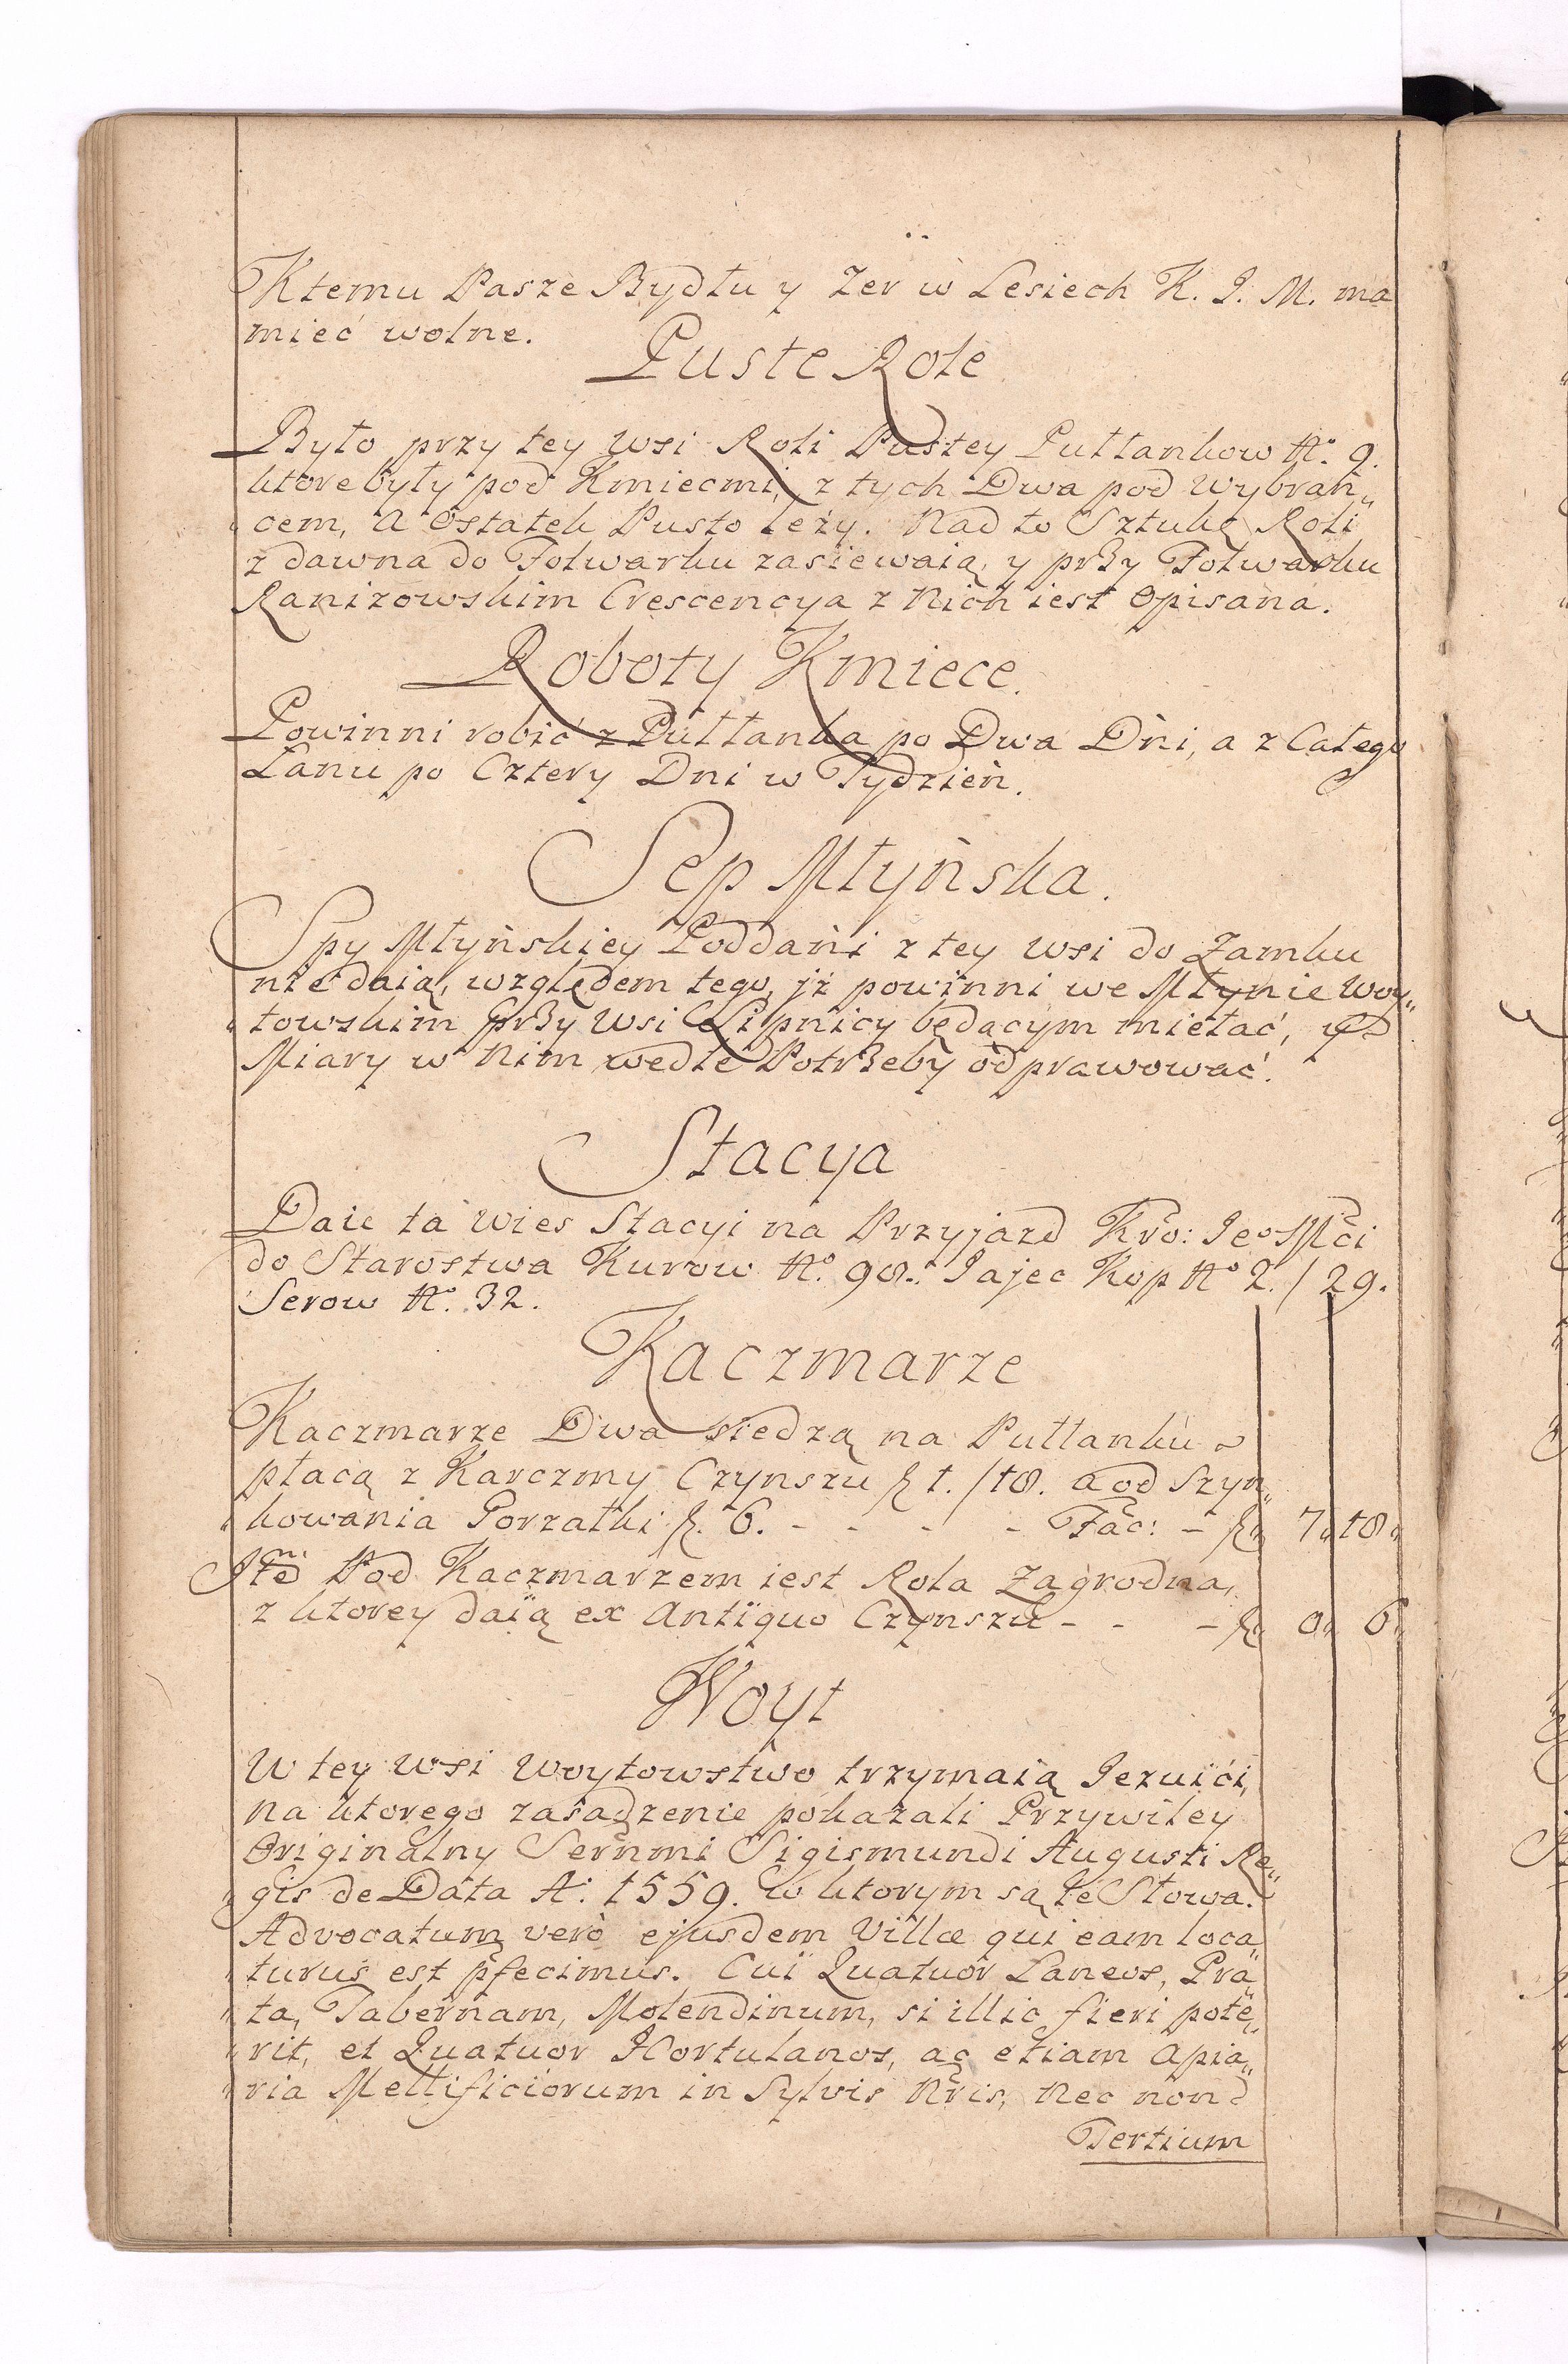 Ktemu Pasze Bydłu y Zer w Lesiech K. J. M. ma
mieć wolne.
Puste Role
Było przy tey wsi Roli Pustey Pułłankow No. 9.
ktore były pod Kmiecmi, z tych Dwa pod wybran„
„cem, a Ostatek Pusto leży. Nad to Sztukę Roli
z dawna do Folwarku zasiewaią, y przy Folwarku
Ranizowskim Crescencya z Nich iest Opisana.
Roboty Kmiece.
Powinni robić z Pułłanka po Dwa Dni, a z Całego
Łanu po Cztery Dni w Tydzień.
Sep Młyńska.
Spy Młyńskiey Poddani z tey wsi do Zamku
nie daią, względem tego, jż powinni we Młynie Woy„
„towskim przy wsi Lipnicy będącym mielać, y
Miary w Nim wedle Potrzeby odprawować.
Stacya
Daie ta wies Stacyi na Przyjazd Kro: Jeo Mči
do Starostwa Kurow No. 98. Jajec Kop No 2. / 29.
Serow No. 32.
Kaczmarze
Kaczmarze Dwa siedzą na Pułłanku
płacą z Karczmy Czynszu f 1. /18. a od Szyn„
„kowania Gorzałki f. 6. - - - - Fac: - f„ 7„ 18„
Itẽ Pod Kaczmarzem iest Rola Zagrodna,
z ktorey daią ex Antiquo Czynszu - - - f„ 0„ 6„
Woyt
W tey wsi Woytowstwo trzymaią Jezuići,
na ktorego zasadzenie pokazali Przywiley
Originalny Sernmi Sigismundi Augusti Re„
„gis de Data A: 1559. w ktorym są te Słowa.
Advocatum verò ejusdem Villæ qui eam loca„
„turus est pfecimus. Cui Quatuor Laneos, Pra„
„ta, Tabernam, Molendinum, si illic fieri pote„
„rit, et Quatuor Hortulanos, ac etiam Apia„
„ria Mellificiorum in Sylvis Nris, Nec non
Tertium